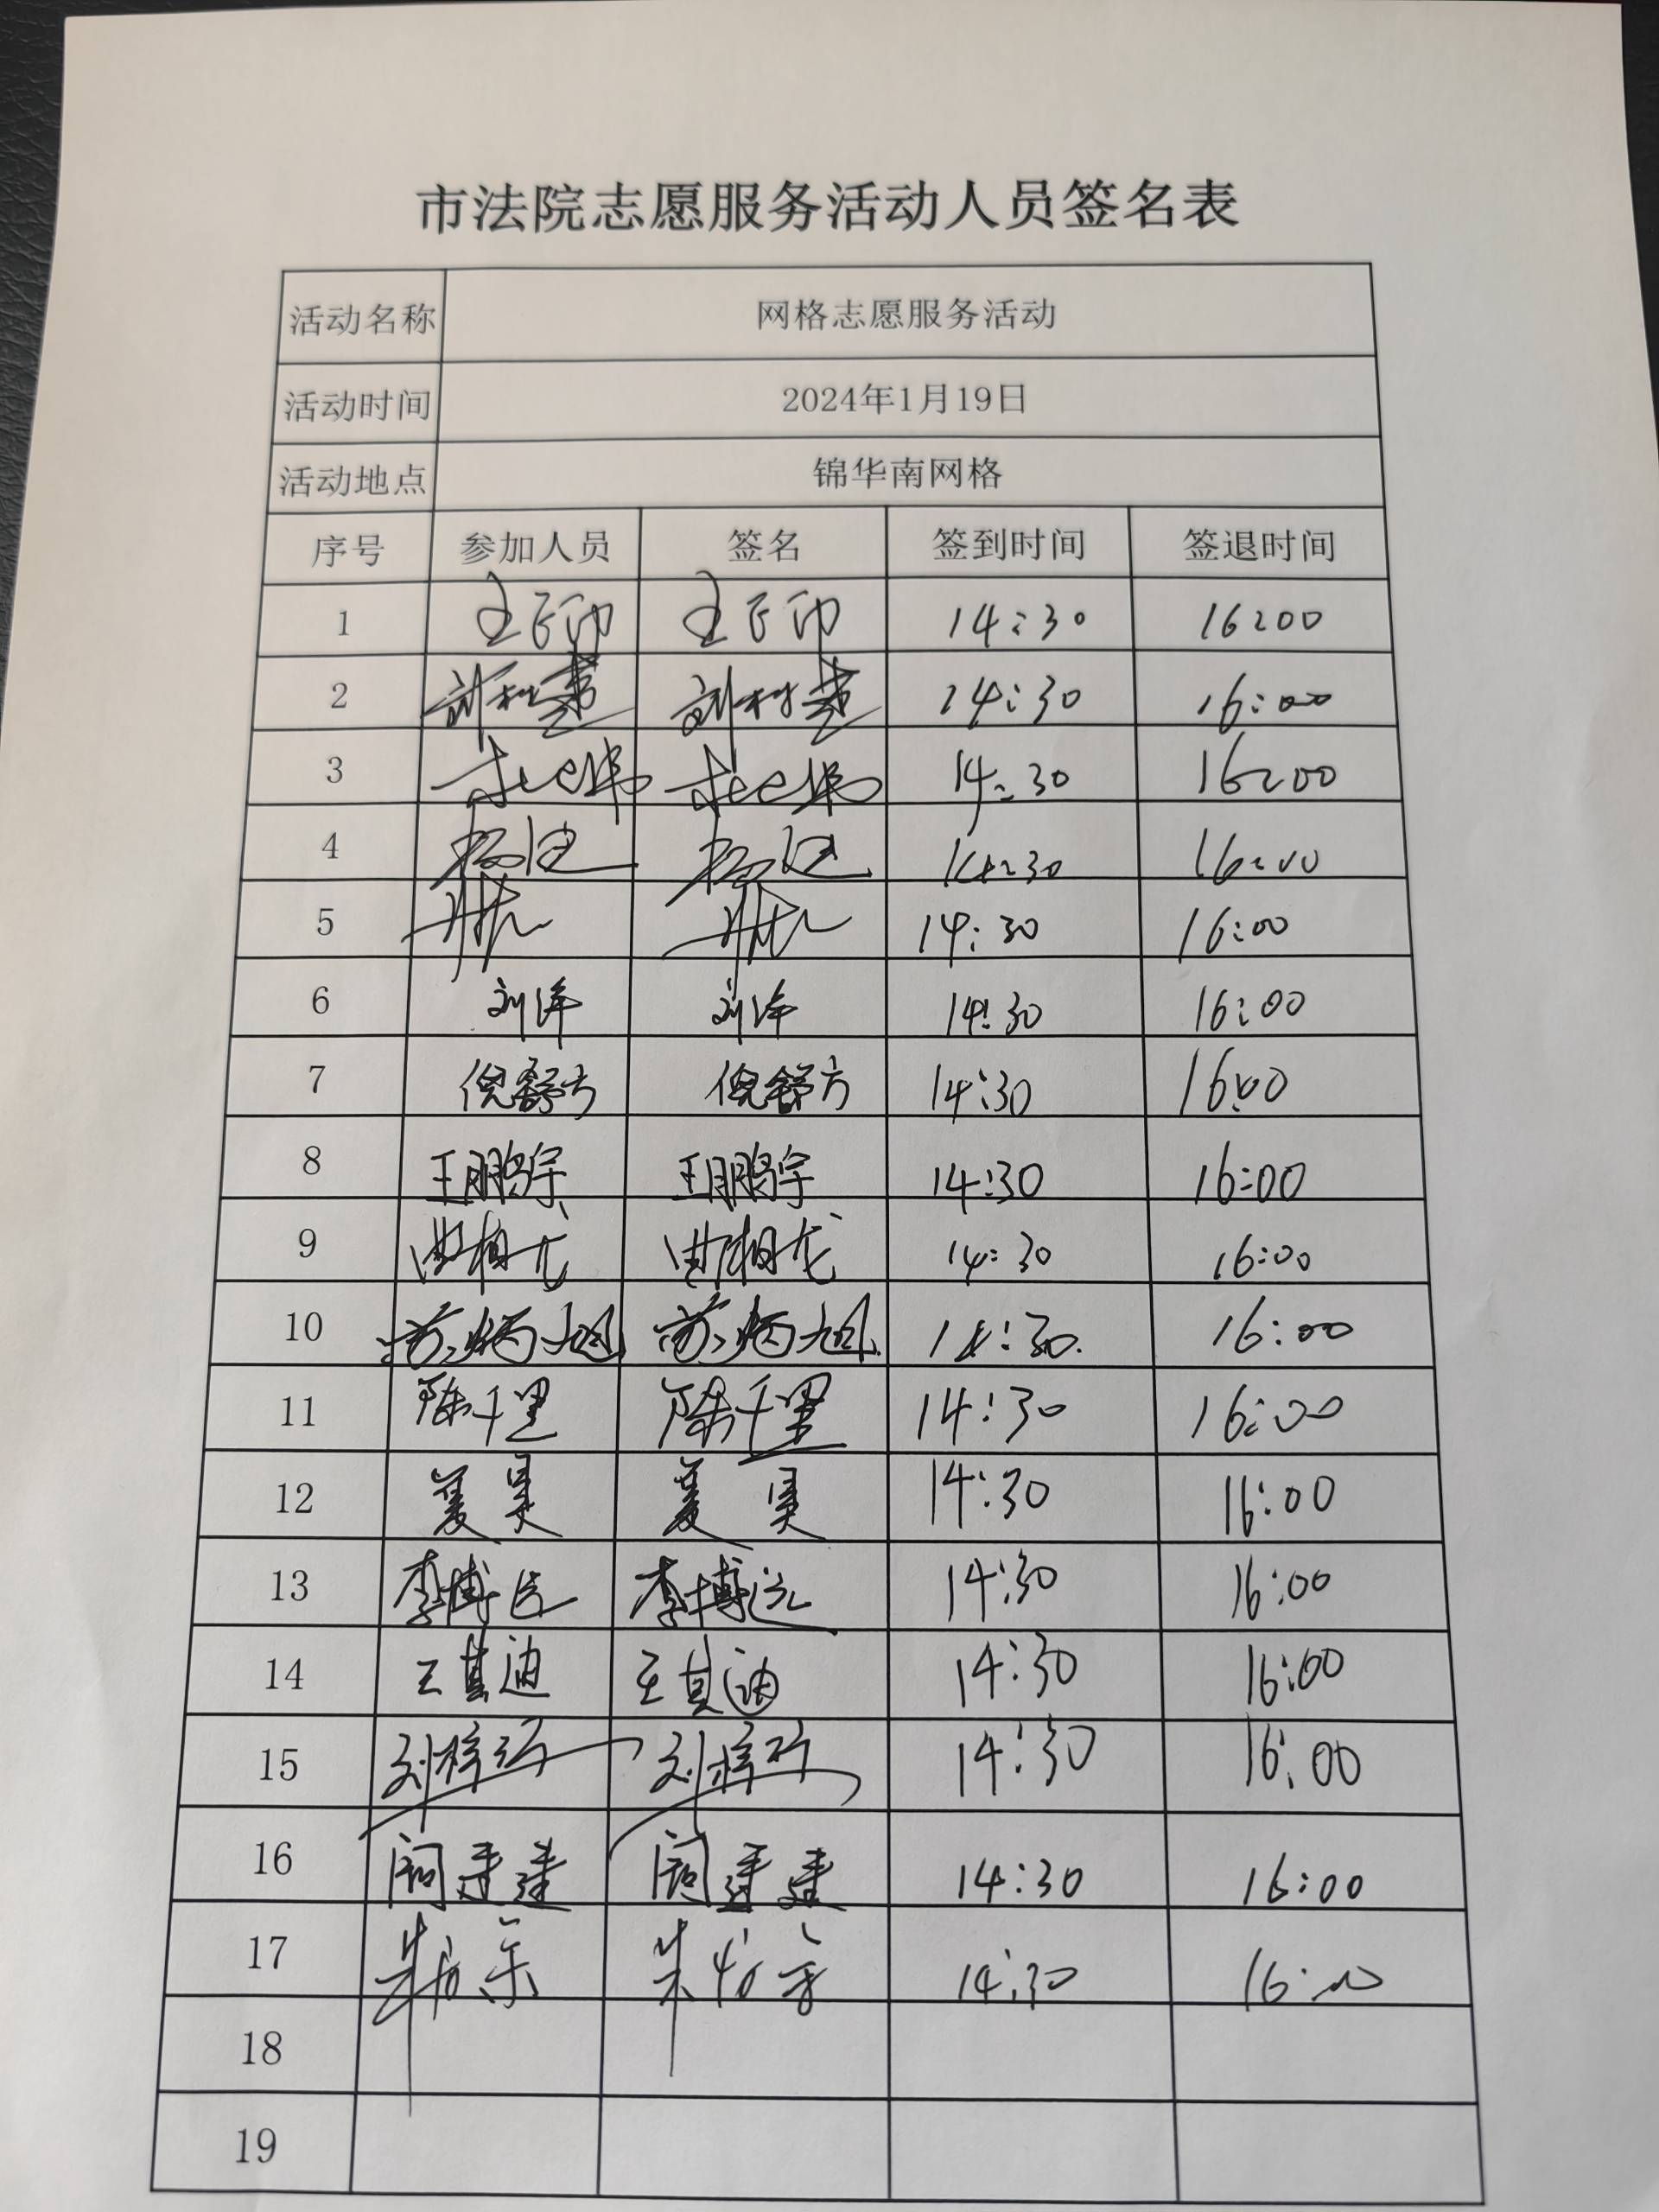 市法院志愿服务活动人员签名表
活动名称 网格志愿服务活动
活动时间 2024年1月19日
活动地点 锦华南网格
序号 参加人员 签名 签到时间 签退时间
1 14:30 16:00
2 14:30 16:00
3 14:30 16:00
4 14:30 16:00
5 14:30 16:00
6 刘洋 刘洋 14:30 16:00
7 倪舒方 倪舒方 14:30 16:00
8 王鹏宇 王鹏宇 14:30 16:00
9 曲相龙 曲相龙 14:30 16:00
10 苏炳旭 苏炳旭 14:30 16:00
11 陈千里 陈千里 14:30 16:00
12 夏昊 夏昊 14:30 16:00
13 李博远 李博远 14:30 16:00
14 王其迪 王其迪 14:30 16:00
15 14:30 16:00
16 14:30 16:00
17 14:30 16:00
18
19